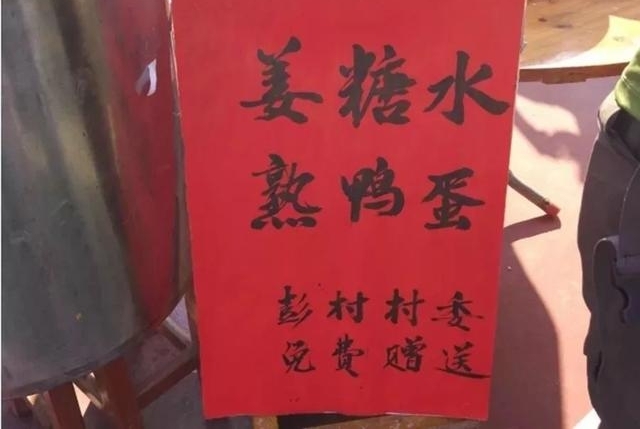 姜糖水
熟鸭蛋
彭村村委
免费赠送